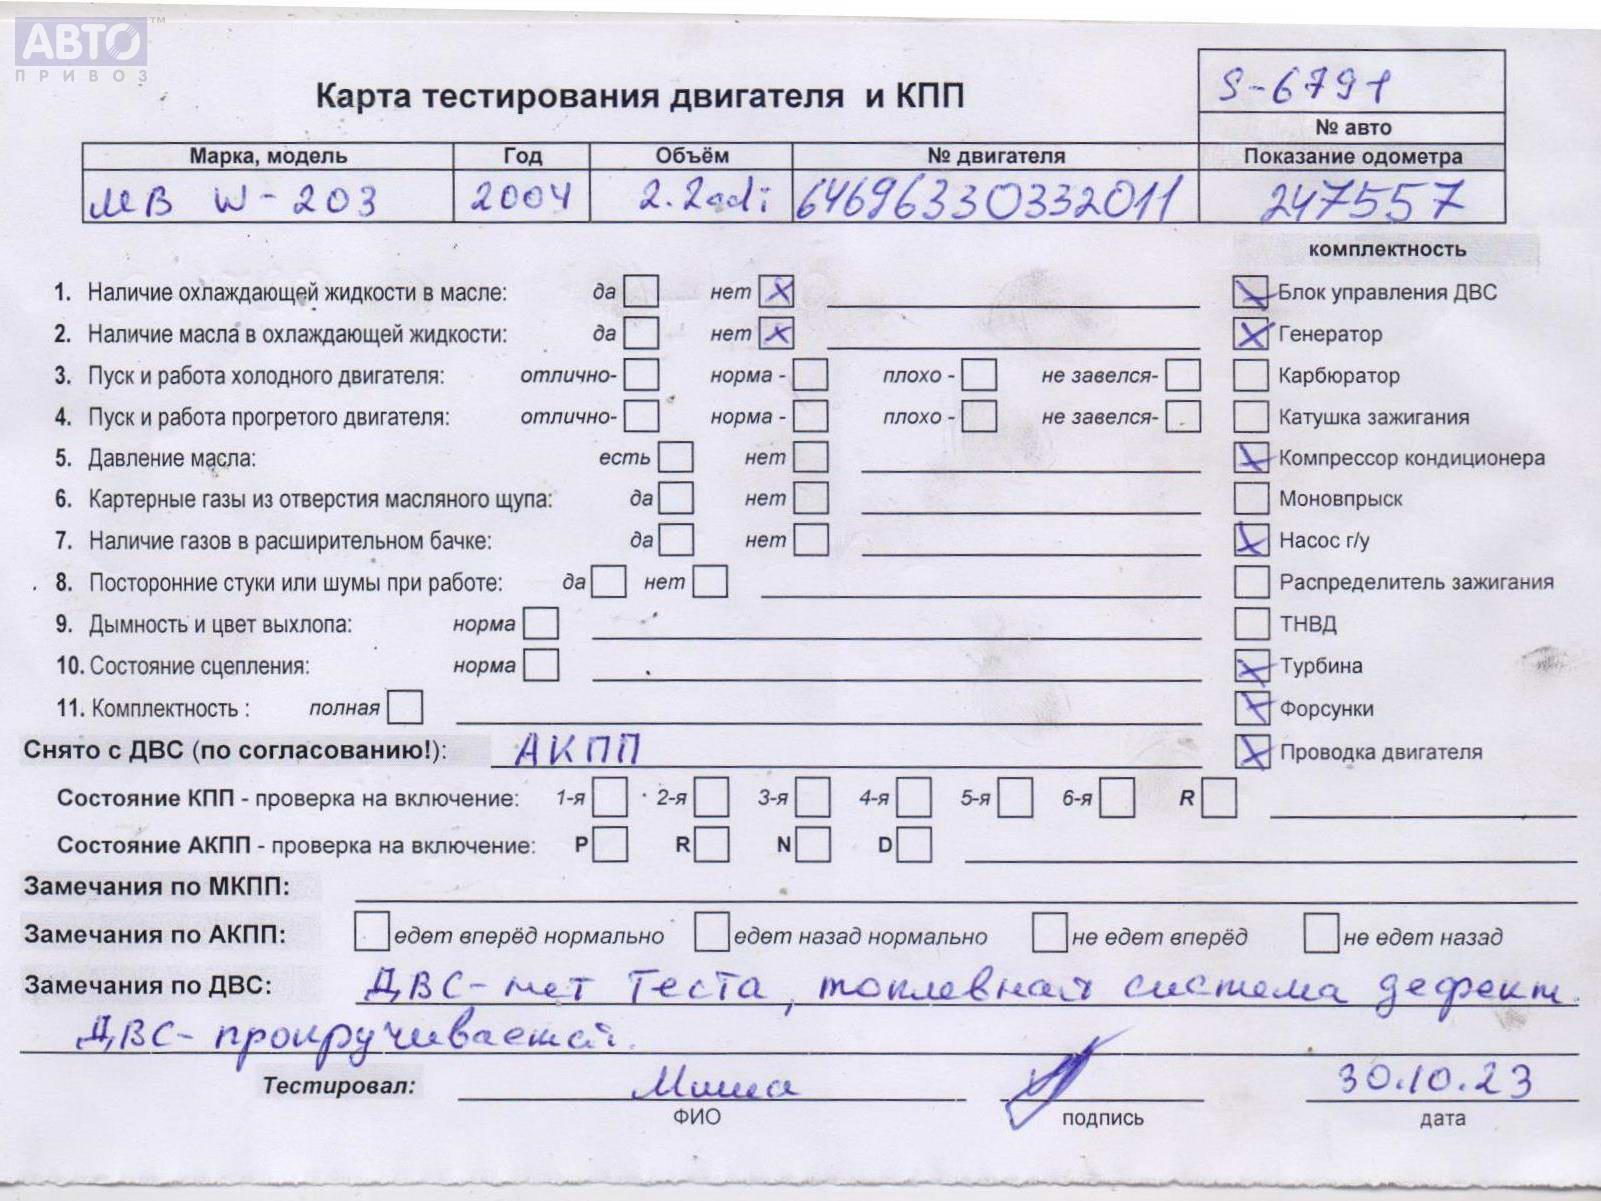 АВТО™
ПРИВОЗ
S-6791
Карта тестирования двигателя и КПП
№ авто
Марка, модель Год Объём № двигателя Показание одометра
МВ W-203 2004 2.2cdi 64696330332011 247557
комплектность
1. Наличие охлаждающей жидкости в масле: да нет Блок управления ДВС
2. Наличие масла в охлаждающей жидкости: да нет Генератор
3. Пуск и работа холодного двигателя: отлично- норма - плохо - не завелся- Карбюратор
4. Пуск и работа прогретого двигателя: отлично- норма - плохо - не завелся- Катушка зажигания
5. Давление масла: есть нет Компрессор кондиционера
6. Картерные газы из отверстия масляного щупа: да нет Моновпрыск
7. Наличие газов в расширительном бачке: да нет Насос г/у
8. Посторонние стуки или шумы при работе: да нет Распределитель зажигания
9. Дымность и цвет выхлопа: норма ТНВД
10. Состояние сцепления: норма Турбина
11. Комплектность : полная Форсунки
Снято с ДВС (по согласованию!): АКПП Проводка двигателя
Состояние КПП - проверка на включение: 1-я 2-я 3-я 4-я 5-я 6-я R
Состояние АКПП - проверка на включение: P R N D
Замечания по МКПП:
Замечания по АКПП: едет вперёд нормально едет назад нормально не едет вперёд не едет назад
Замечания по ДВС: ДВС-нет Теста, топливная система дефект.
ДВС-прокручивается.
Тестировал: Миша 30.10.23
ФИО подпись дата